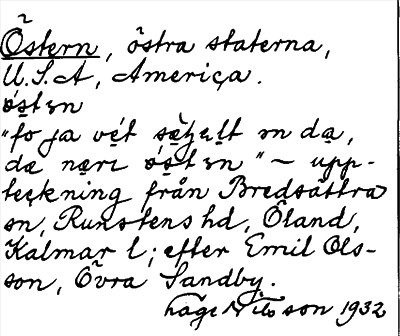 Östern, östra staterna,
U.S.A, America.
östɜn
"fo ja vét sæʒɛlt ɜn da,
dæ næri östɜn" ~ upp-
teckning från Bredsättra
sn, Runstens hd, Öland,
Kalmar l; efter Emil Ols-
son, Övra Sandby.
Hage Nilsson 1932